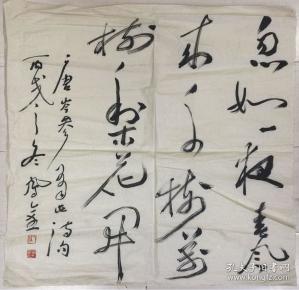 忽如一夜春风
来千树万
树梨花开
唐岑参诗句
丙戌之冬